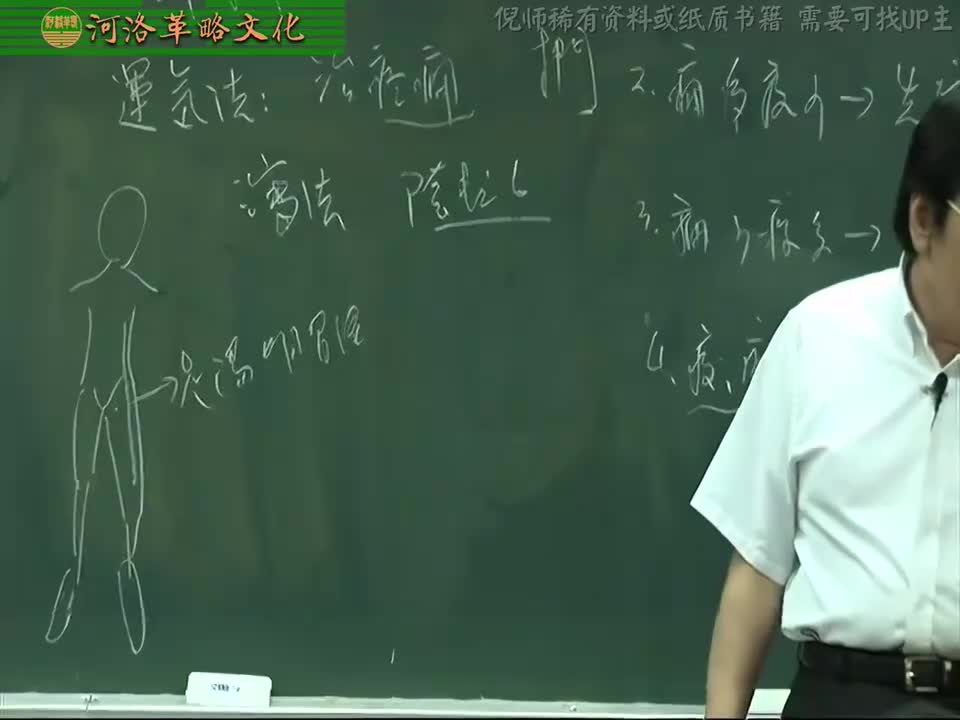 河洛革略文化
倪师稀有资料或纸质书籍 需要可找UP主
運氣法: 治疼痛
瀉法 陰數六
足陽明胃經
2. 痛多痠少→先
3. 痛少痠多→
4、痠、